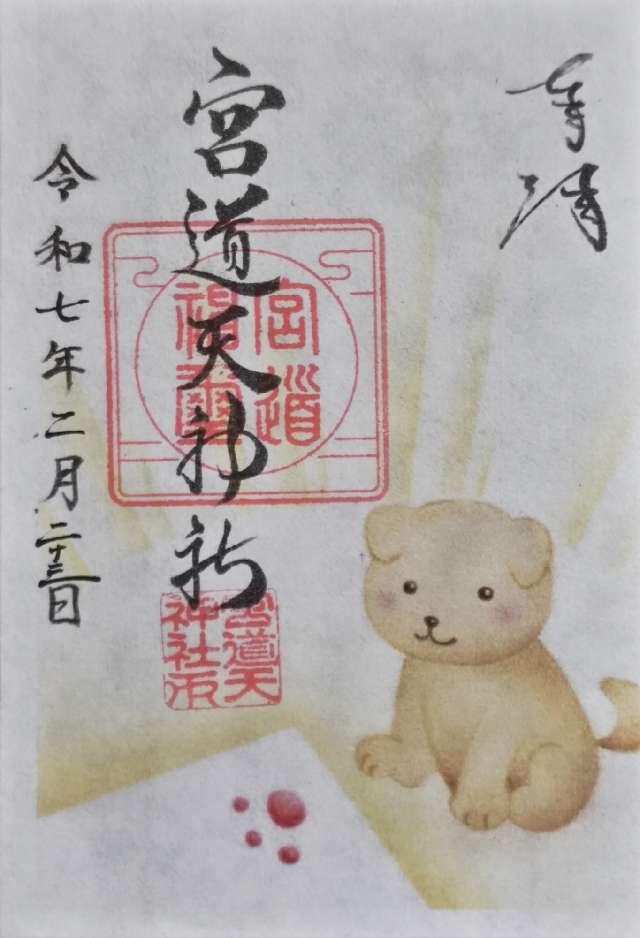 宮道天神社
宮道
神璽
宮道天
神社印
令和七年二月二十三日